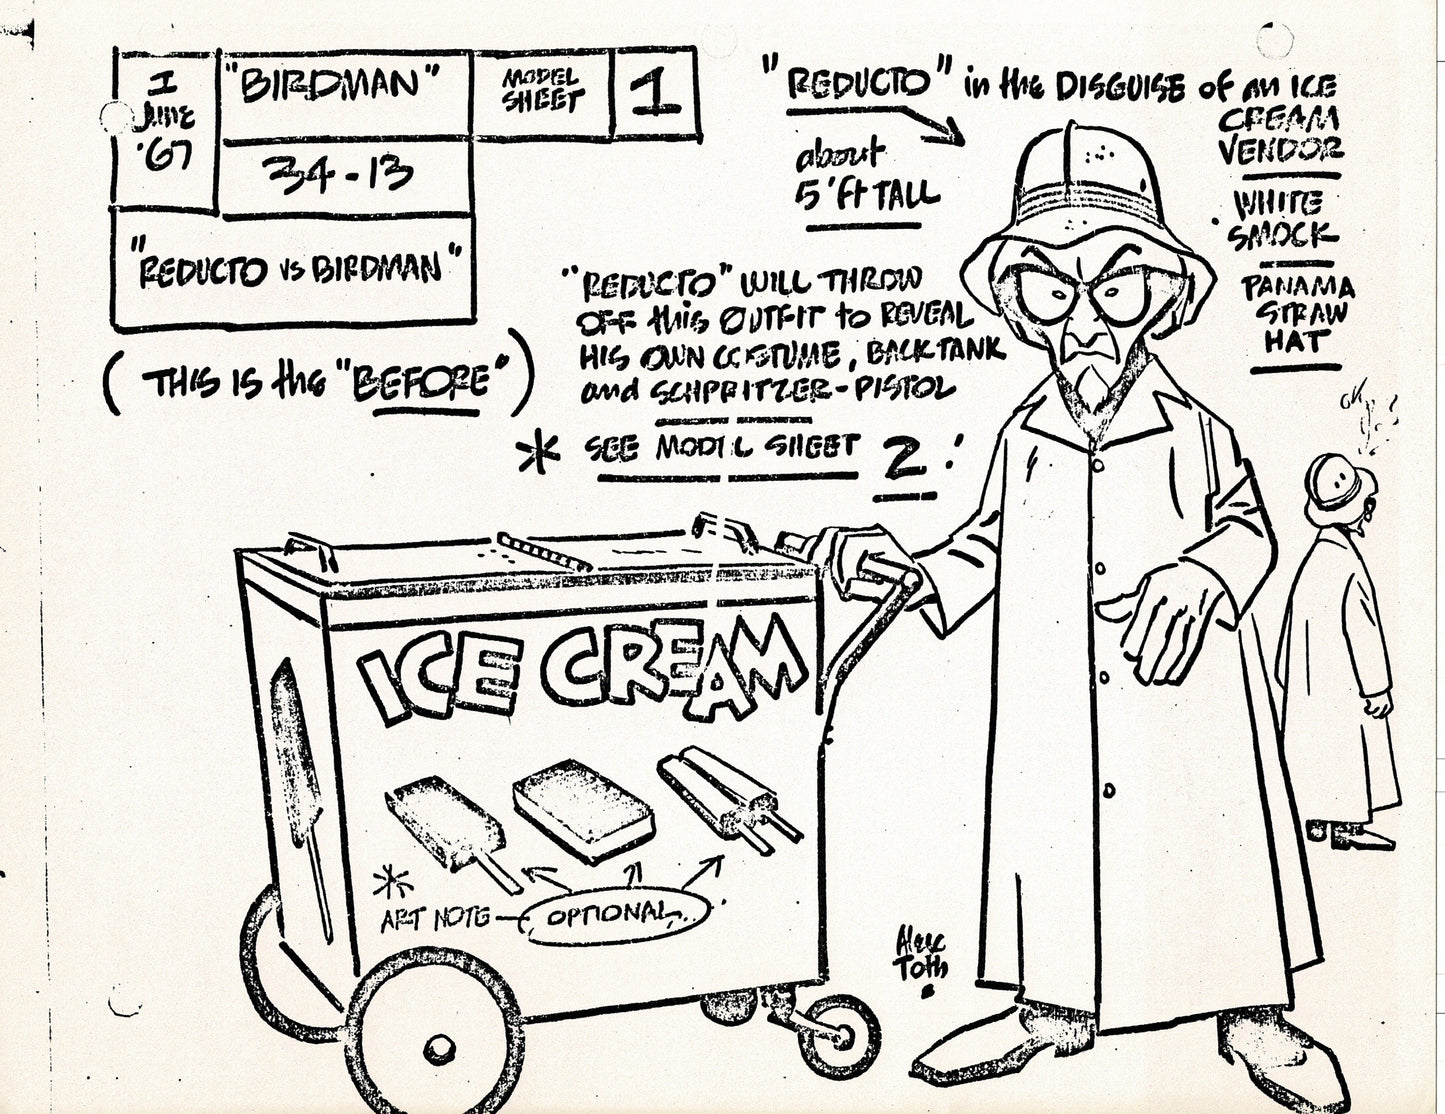 1
JUNE
'67
"BIRDMAN"
MODEL
SHEET
1
34-13
"REDUCTO VS BIRDMAN"
(THIS IS the "BEFORE")
"REDUCTO" in the DISGUISE of an ICE
CREAM
VENDOR
about
5'ft TALL
WHITE
SMOCK
PANAMA
STRAW
HAT
"REDUCTO" WILL THROW
OFF this OUTFIT to REVEAL
HIS OWN COSTUME, BACKTANK
and SCHPRITZER-PISTOL
* SEE MODEL SHEET 2!
ICE CREAM
* ART NOTE - OPTIONAL..
Alex
Toth